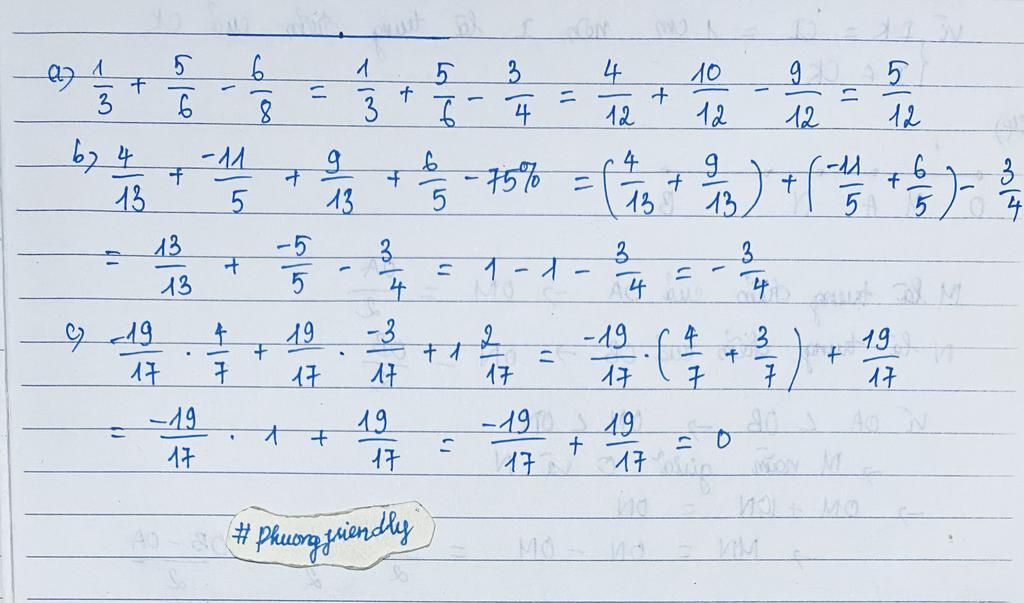 a) 1/3 + 5/6 - 6/8 = 1/3 + 5/6 - 3/4 = 4/12 + 10/12 - 9/12 = 5/12
b) 4/13 + -11/5 + 9/13 + 6/5 - 75% = (4/13 + 9/13) + (-11/5 + 6/5) - 3/4
= 13/13 + -5/5 - 3/4 = 1 - 1 - 3/4 = - 3/4
c) -19/17 . 4/7 + 19/17 . -3/17 + 1 2/17 = -19/17 . (4/7 + 3/7) + 19/17
= -19/17 . 1 + 19/17 = -19/17 + 19/17 = 0
# phuongfriendly